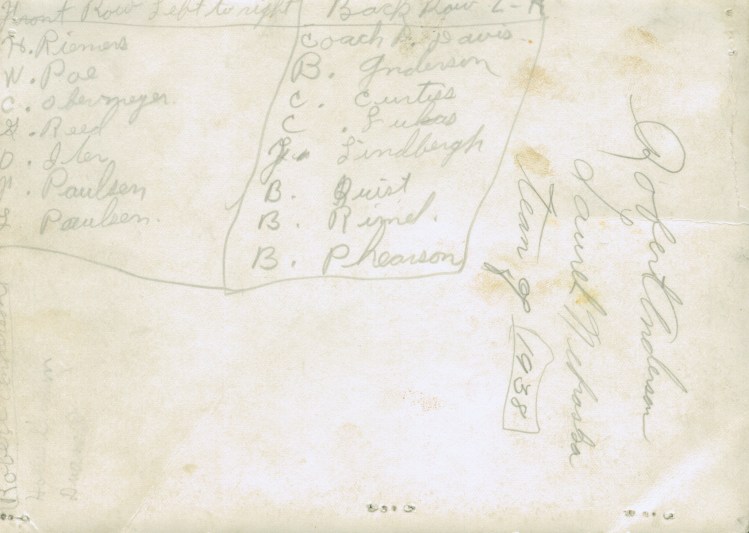 Front Row Left to right
H. Riemers
W. Poe
C. Obermeyer
Reed
D. Iler
Paulsen
L Paulsen.
Back Row L-R
Coach D. Davis
B. Anderson
C. Curtiss
C. Lukas
Lindbergh
B. Quist
B. Rimel.
B. Phearson
Robert Anderson
Laurel Nebraska
team of 1938